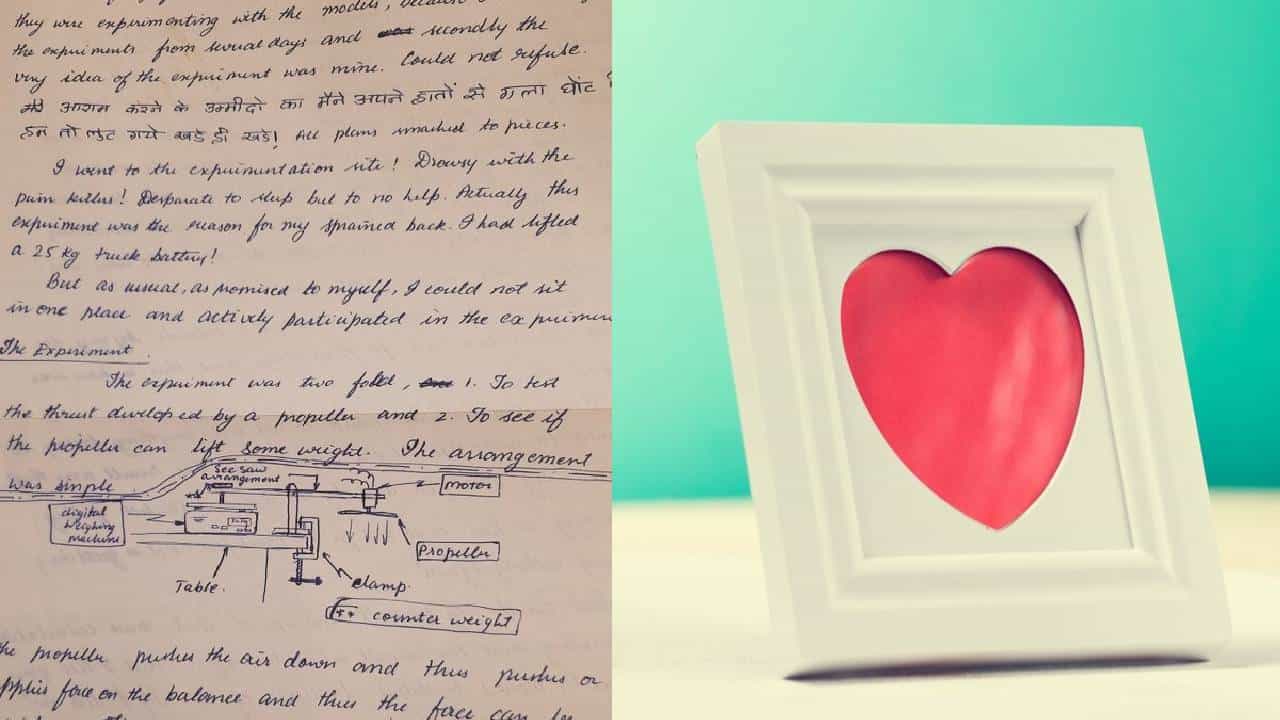 they were experimenting with the models, because
the experiments from several days and secondly the
very idea of the experiment was mine. Could not refuse.
मेरे आराम करने के उम्मीदो का मैंने अपने हातों से गला घोंट
हम तो लुट गये खडे ही खडे! All plans smached to pieces.
I went to the experimentation site! Drowsy with the
pain killers! Desparate to sleep but to no help. Actually this
experiment was the reason for my sprained back. I had lifted
a 25 kg truck battery!
But as usual, as promised to myself, I could not sit
in one place and actively participated in the experimen
The Experiment.
The experiment was two fold, 1. To test
the thrust developed by a propeller and 2. To see if
the propeller can lift some weight. The arrangement
was simple
See saw
arrangement
motor
digital
weighing
machine
Propeller
Table.
clamp.
** counter weight
he propeller pushes the air down and thus pushes or
pplies force on the balance and thus the force can be